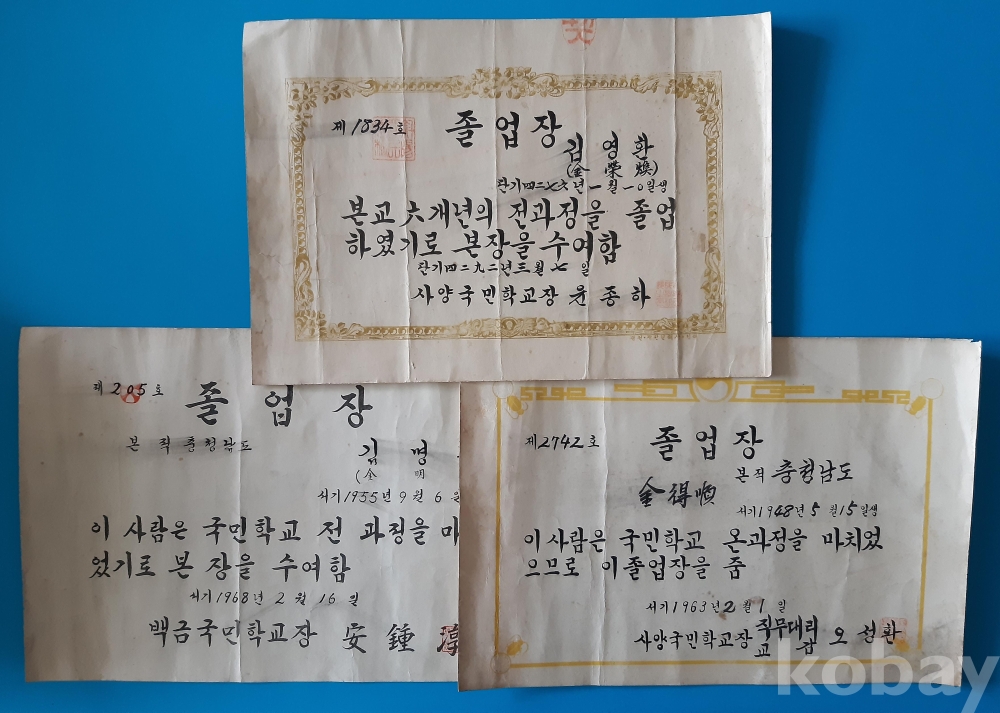 제 1834 호
졸업장
김 영 환
(金 榮 煥)
단기四二七六年一월一○일생
본교 六개년의 전과정을 졸업
하였기로 본장을 수여함
단기四二九二년三월七일
사양국민학교장 윤종하
제 205 호
졸 업 장
본 적 충청남도
김 명
(金 明
서기1955년 9월 6일
이 사람은 국민학교 전 과정을 마
었기로 본 장을 수여함
서기1968년 2월 16일
백금국민학교장 安鍾
제2742호
졸업장
본적 충청남도
金得順
서기1948년 5월15일생
이 사람은 국민학교 온과정을 마치었
으므로 이 졸업장을 줌
서기1963년 2월 1일
사양국민학교장 직무대리
교 감 오 성 환
kobay